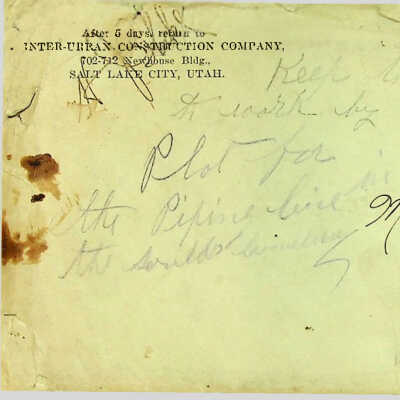 After 5 days, return to
INTER-URBAN CONSTRUCTION COMPANY,
702-712 Newhouse Bldg.,
SALT LAKE CITY, UTAH.
Keep
to work by
Plot for
the Pipine line in
the
M